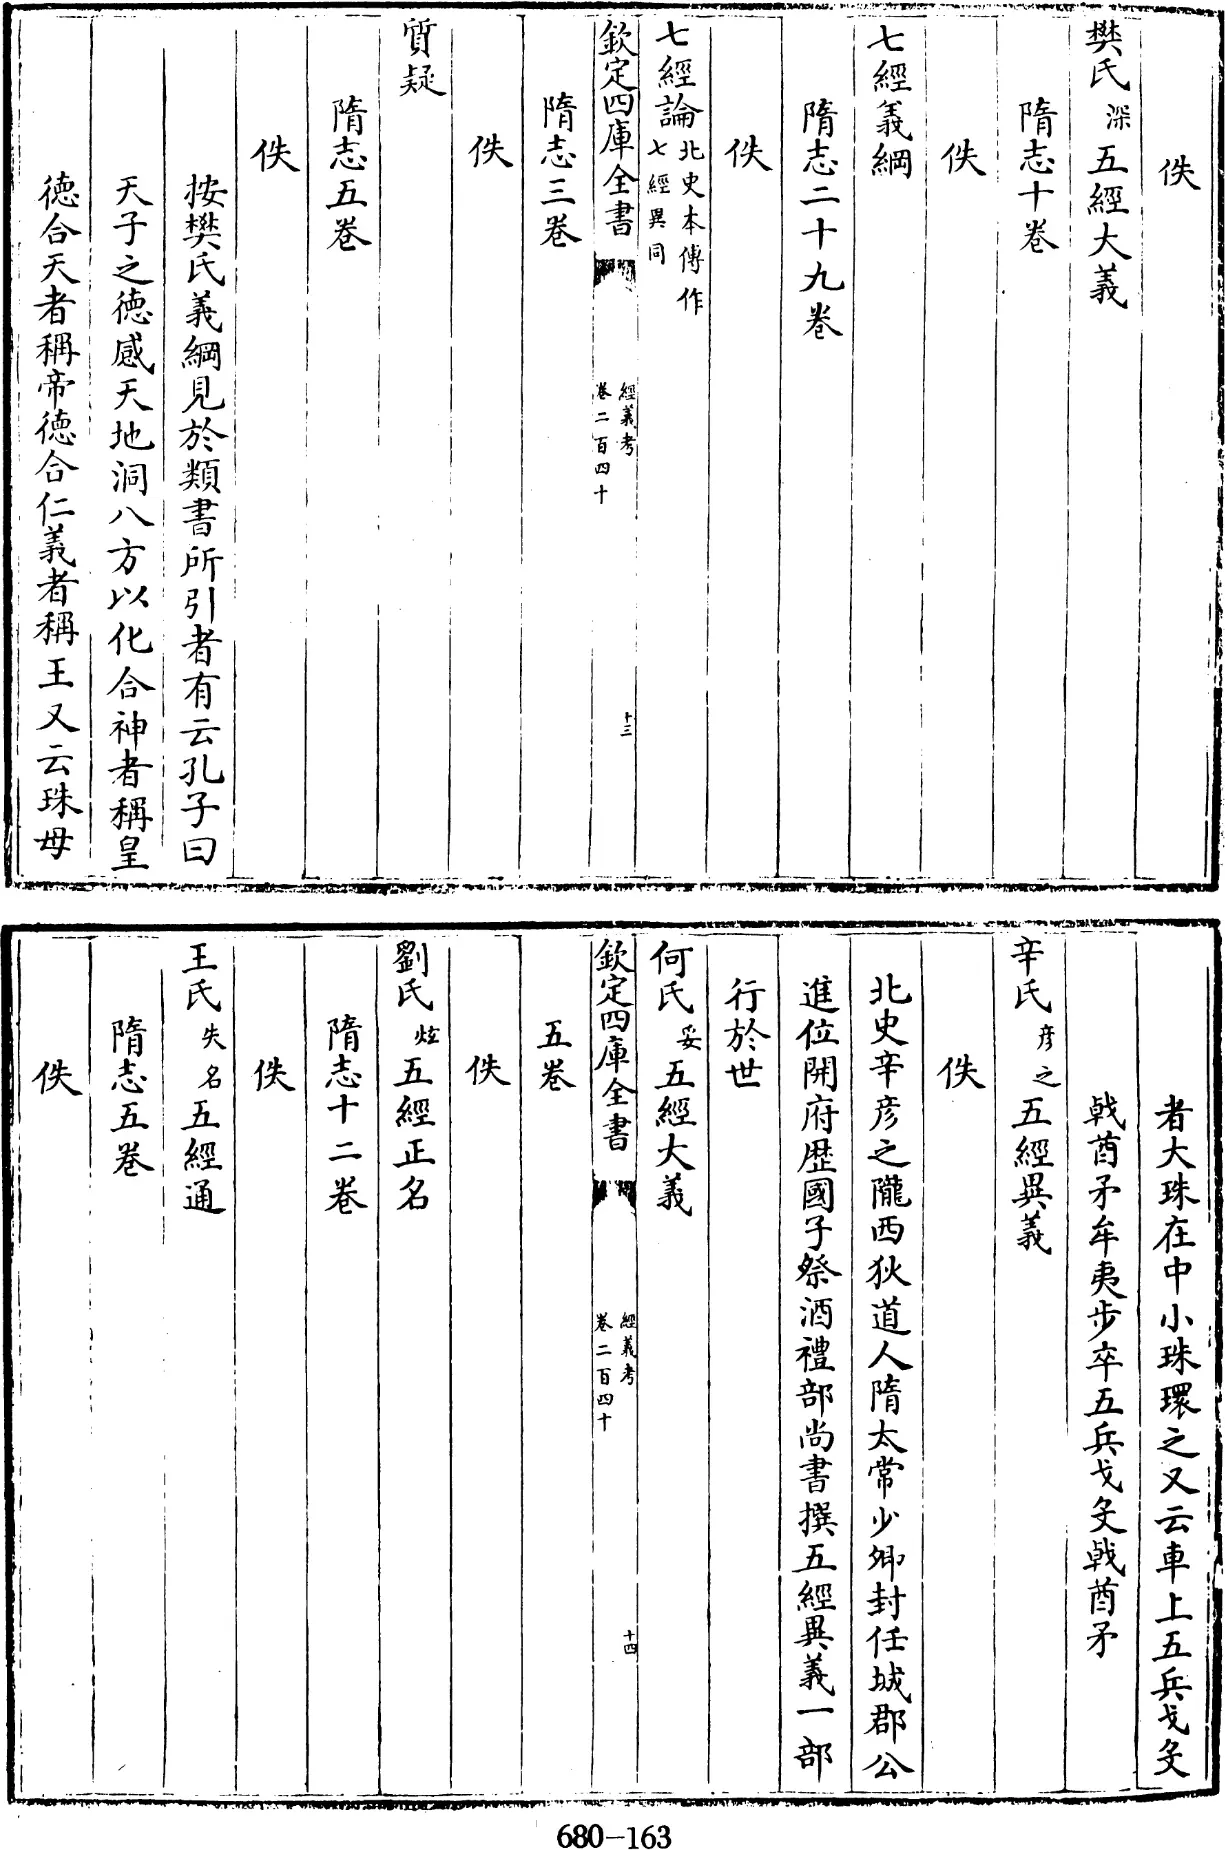 佚
樊氏深五經大義
隋志十卷
佚
七經義綱
隋志二十九卷
佚
七經論北史本傳作七經異同
欽定四庫全書 經義考卷二百四十 十三
隋志三卷
佚
質疑
隋志五卷
佚
按樊氏義綱見於類書所引者有云孔子曰
天子之德感天地洞八方以化合神者稱皇
德合天者稱帝德合仁義者稱王又云珠母
者大珠在中小珠環之又云車上五兵戈殳
戟酋矛牟夷步卒五兵戈殳戟酋矛
辛氏彥之五經異義
佚
北史辛彥之隴西狄道人隋太常少卿封任城郡公
進位開府歴國子祭酒禮部尚書撰五經異義一部
行於世
何氏妥五經大義
欽定四庫全書 經義考卷二百四十 十四
五卷
佚
劉氏炫五經正名
隋志十二卷
佚
王氏失名五經通
隋志五卷
佚
680-163